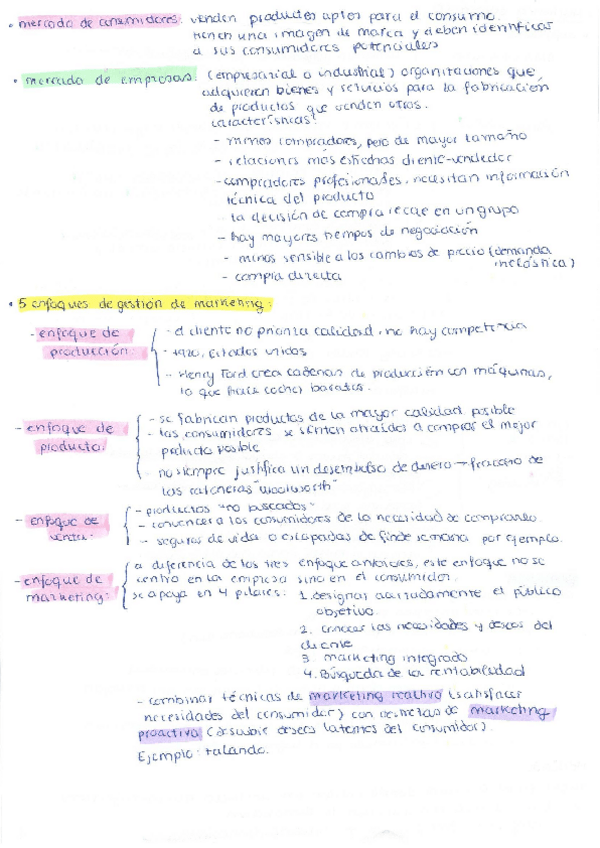 • mercado de consumidores: venden productos aptos para el consumo.
tienen una imagen de marca y deben identificar
a sus consumidores potenciales
• mercado de empresas: (empresarial o industrial) organizaciones que
adquieren bienes y servicios para la fabricación
de productos que venden otros.
características:
- menos compradores, pero de mayor tamaño
- relaciones más estrechas cliente-vendedor
- compradores profesionales, necesitan información
técnica del producto
- la decisión de compra recae en un grupo
- hay mayores tiempos de negociación
- menos sensible a los cambios de precio (demanda
inelástica)
- compra directa
• 5 enfoques de gestión de marketing:
- enfoque de producción:
- el cliente no prioriza calidad, no hay competencia
- 1920, Estados Unidos
- Henry Ford crea cadenas de producción con máquinas,
lo que hace coches baratos.
- enfoque de producto:
- se fabrican productos de la mayor calidad posible
- los consumidores se sienten atraídos a comprar el mejor
producto posible
- no siempre justifica un desembolso de dinero → fracaso de
las ratoneras "woolworth"
- enfoque de venta:
- productos "no buscados"
- convencer a los consumidores de la necesidad de comprarlo
- seguros de vida o escapadas de finde semana por ejemplo.
- enfoque de marketing:
a diferencia de los tres enfoque anteriores, este enfoque no se
centra en la empresa sino en el consumidor.
se apoya en 4 pilares: 1. designar adecuadamente el público
objetivo
2. conocer las necesidades y deseos del
cliente
3. marketing integrado
4. Búsqueda de la rentabilidad
- combinar técnicas de marketing reactivo (satisfacer
necesidades del consumidor) con de marketing
proactivo (descubrir deseos latentes del consumidor).
Ejemplo: Zalando.